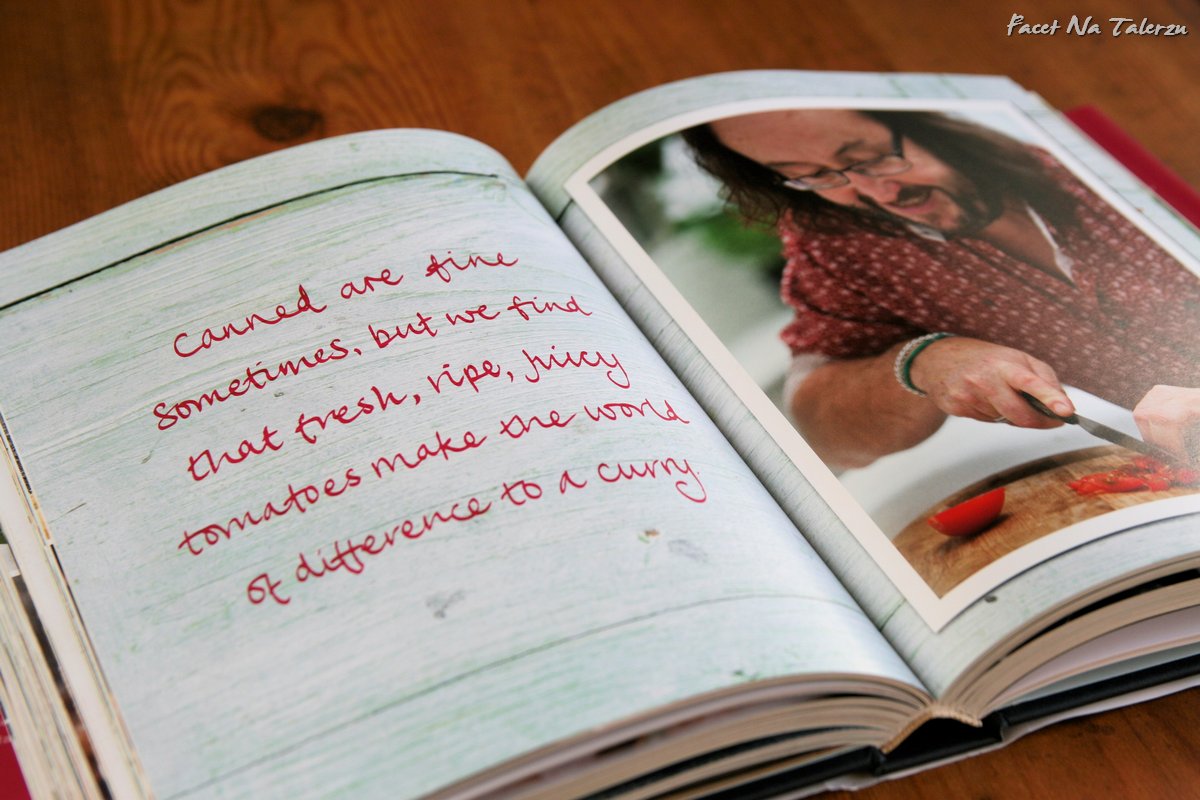 Facet Na Talerzu
Canned are fine
sometimes, but we find
that fresh, ripe, juicy
tomatoes make the world
of difference to a curry.